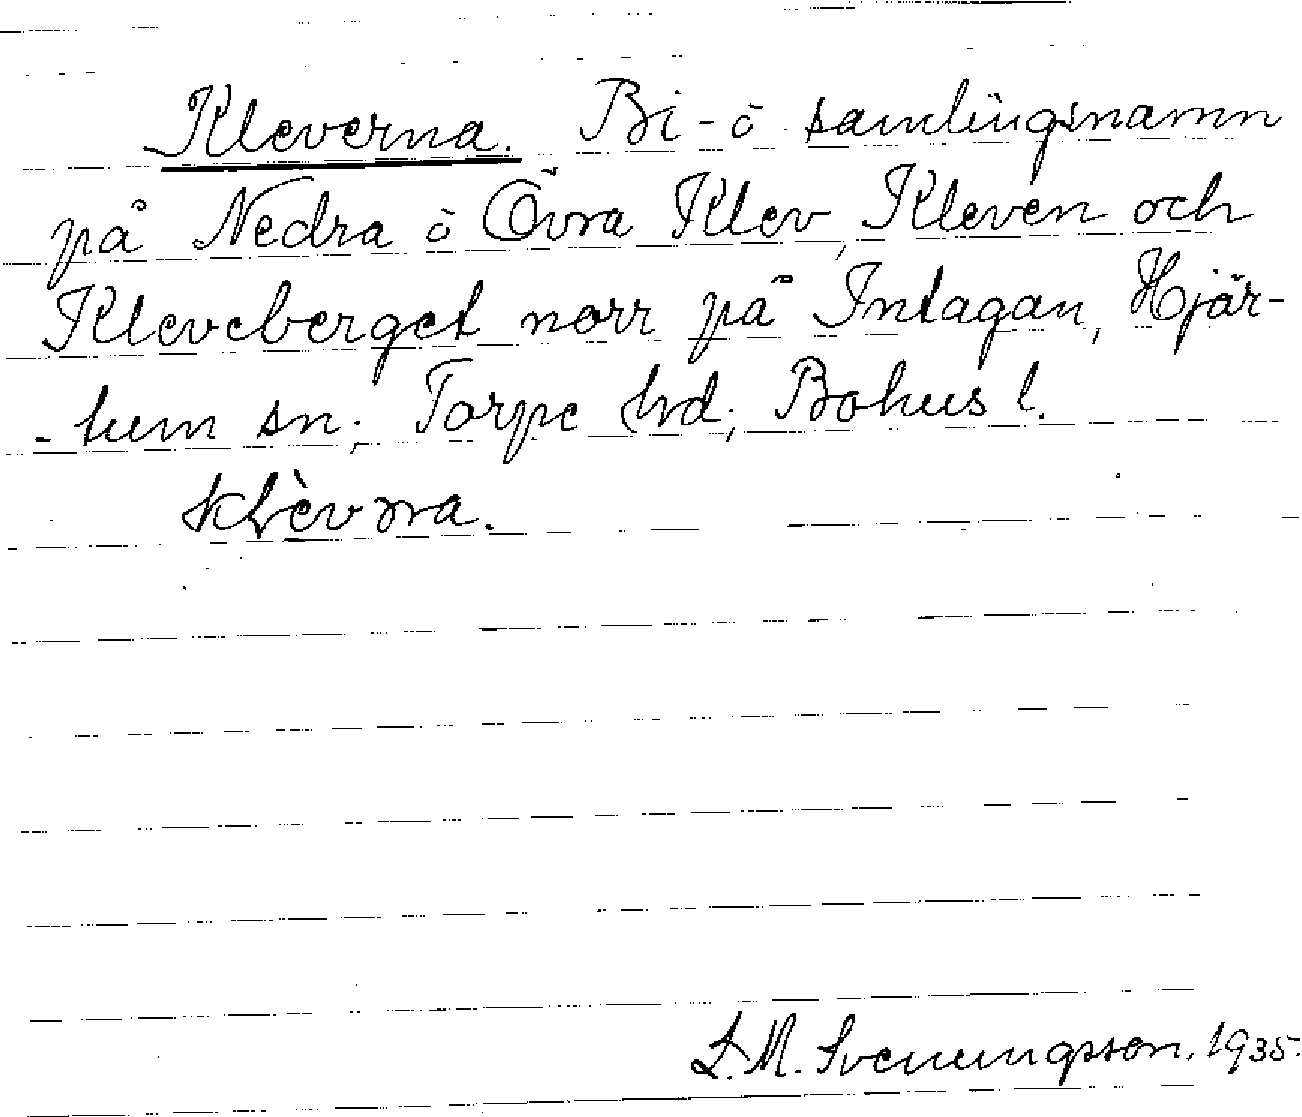 Kleverna. Bi- ō samlingsnamn
på Nedra ō Övra Klev, Kleven och
Kleveberget norr på Intagan, Hjär-
-tum sn; Torpe hd; Bohus l.
L. M. Svenungsson. 1935.